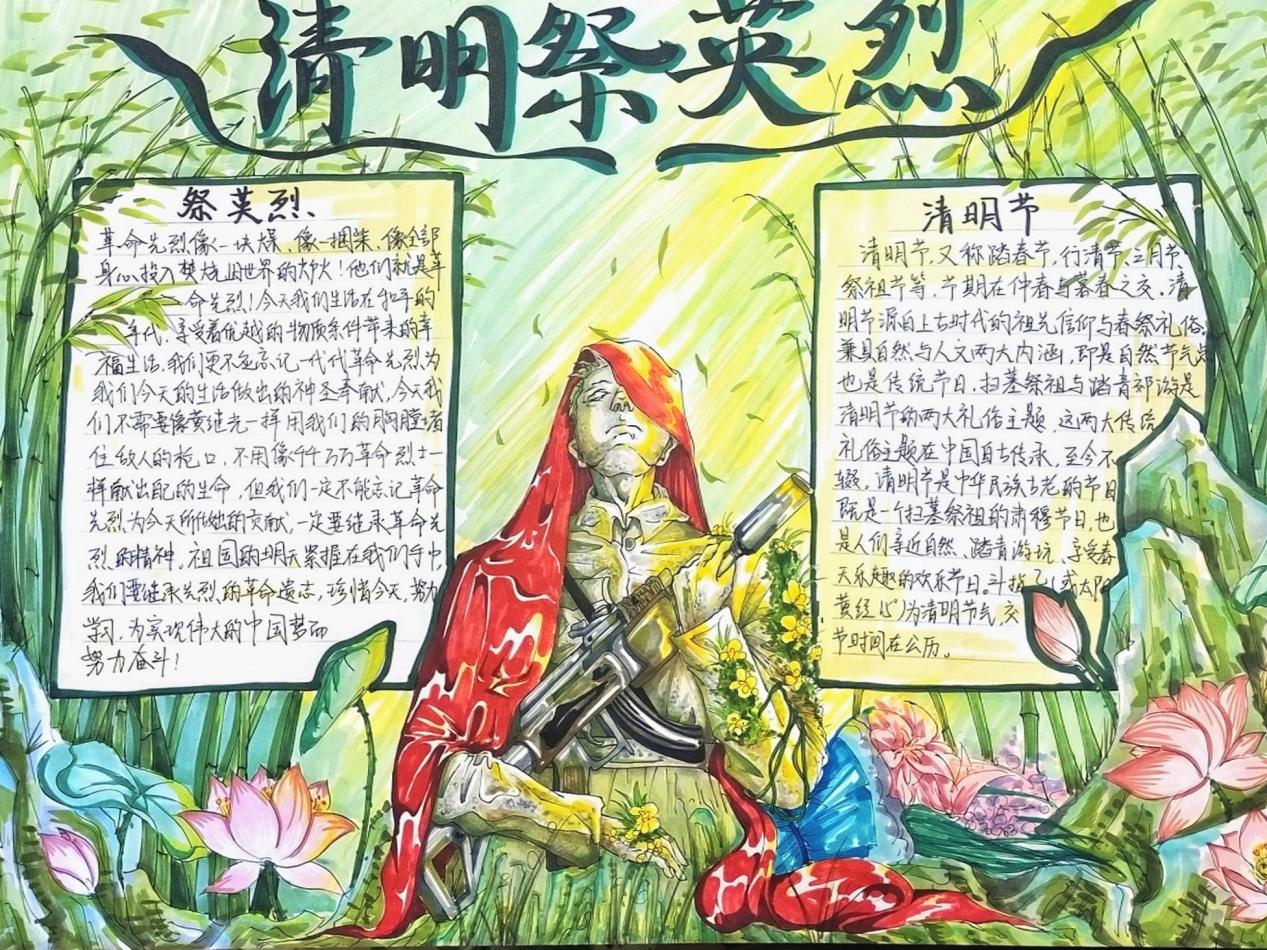 清明祭英烈
祭英烈、
革命先烈像一块煤、像一捆柴、像全部
身心投入焚烧旧世界的大火！他们就是革
命先烈！今天我们生活在和平的
年代，享受着优越的物质条件带来的幸
福生活，我们更不能忘记一代代革命先烈为
我们今天的生活做出的神圣奉献，今天我
们不需要像黄继光一样用我们的胸膛堵
住敌人的枪口，不用像千千万万革命烈士一
样献出自己的生命，但我们一定不能忘记革命
先烈为今天所做出的贡献，一定要继承革命先
烈的精神，祖国的明天紧握在我们手中，
我们要继承先烈的革命遗志，珍惜今天，努力
学习，为实现伟大的中国梦而
努力奋斗！
清明节
清明节，又称踏春节，行清节、三月节、
祭祖节等，节期在仲春与暮春之交。清
明节源自上古时代的祖先信仰与春祭礼俗，
兼具自然与人文两大内涵，即是自然节气点
也是传统节日，扫墓祭祖与踏青郊游是
清明节的两大礼俗主题，这两大传统
礼俗主题在中国自古传承，至今不
辍，清明节是中华民族古老的节日
既是一个扫墓祭祖的肃穆节日，也
是人们亲近自然、踏青游玩、享受春
天乐趣的欢乐节日。斗指乙（或太阳
黄经 为清明节气，交
节时间在公历。